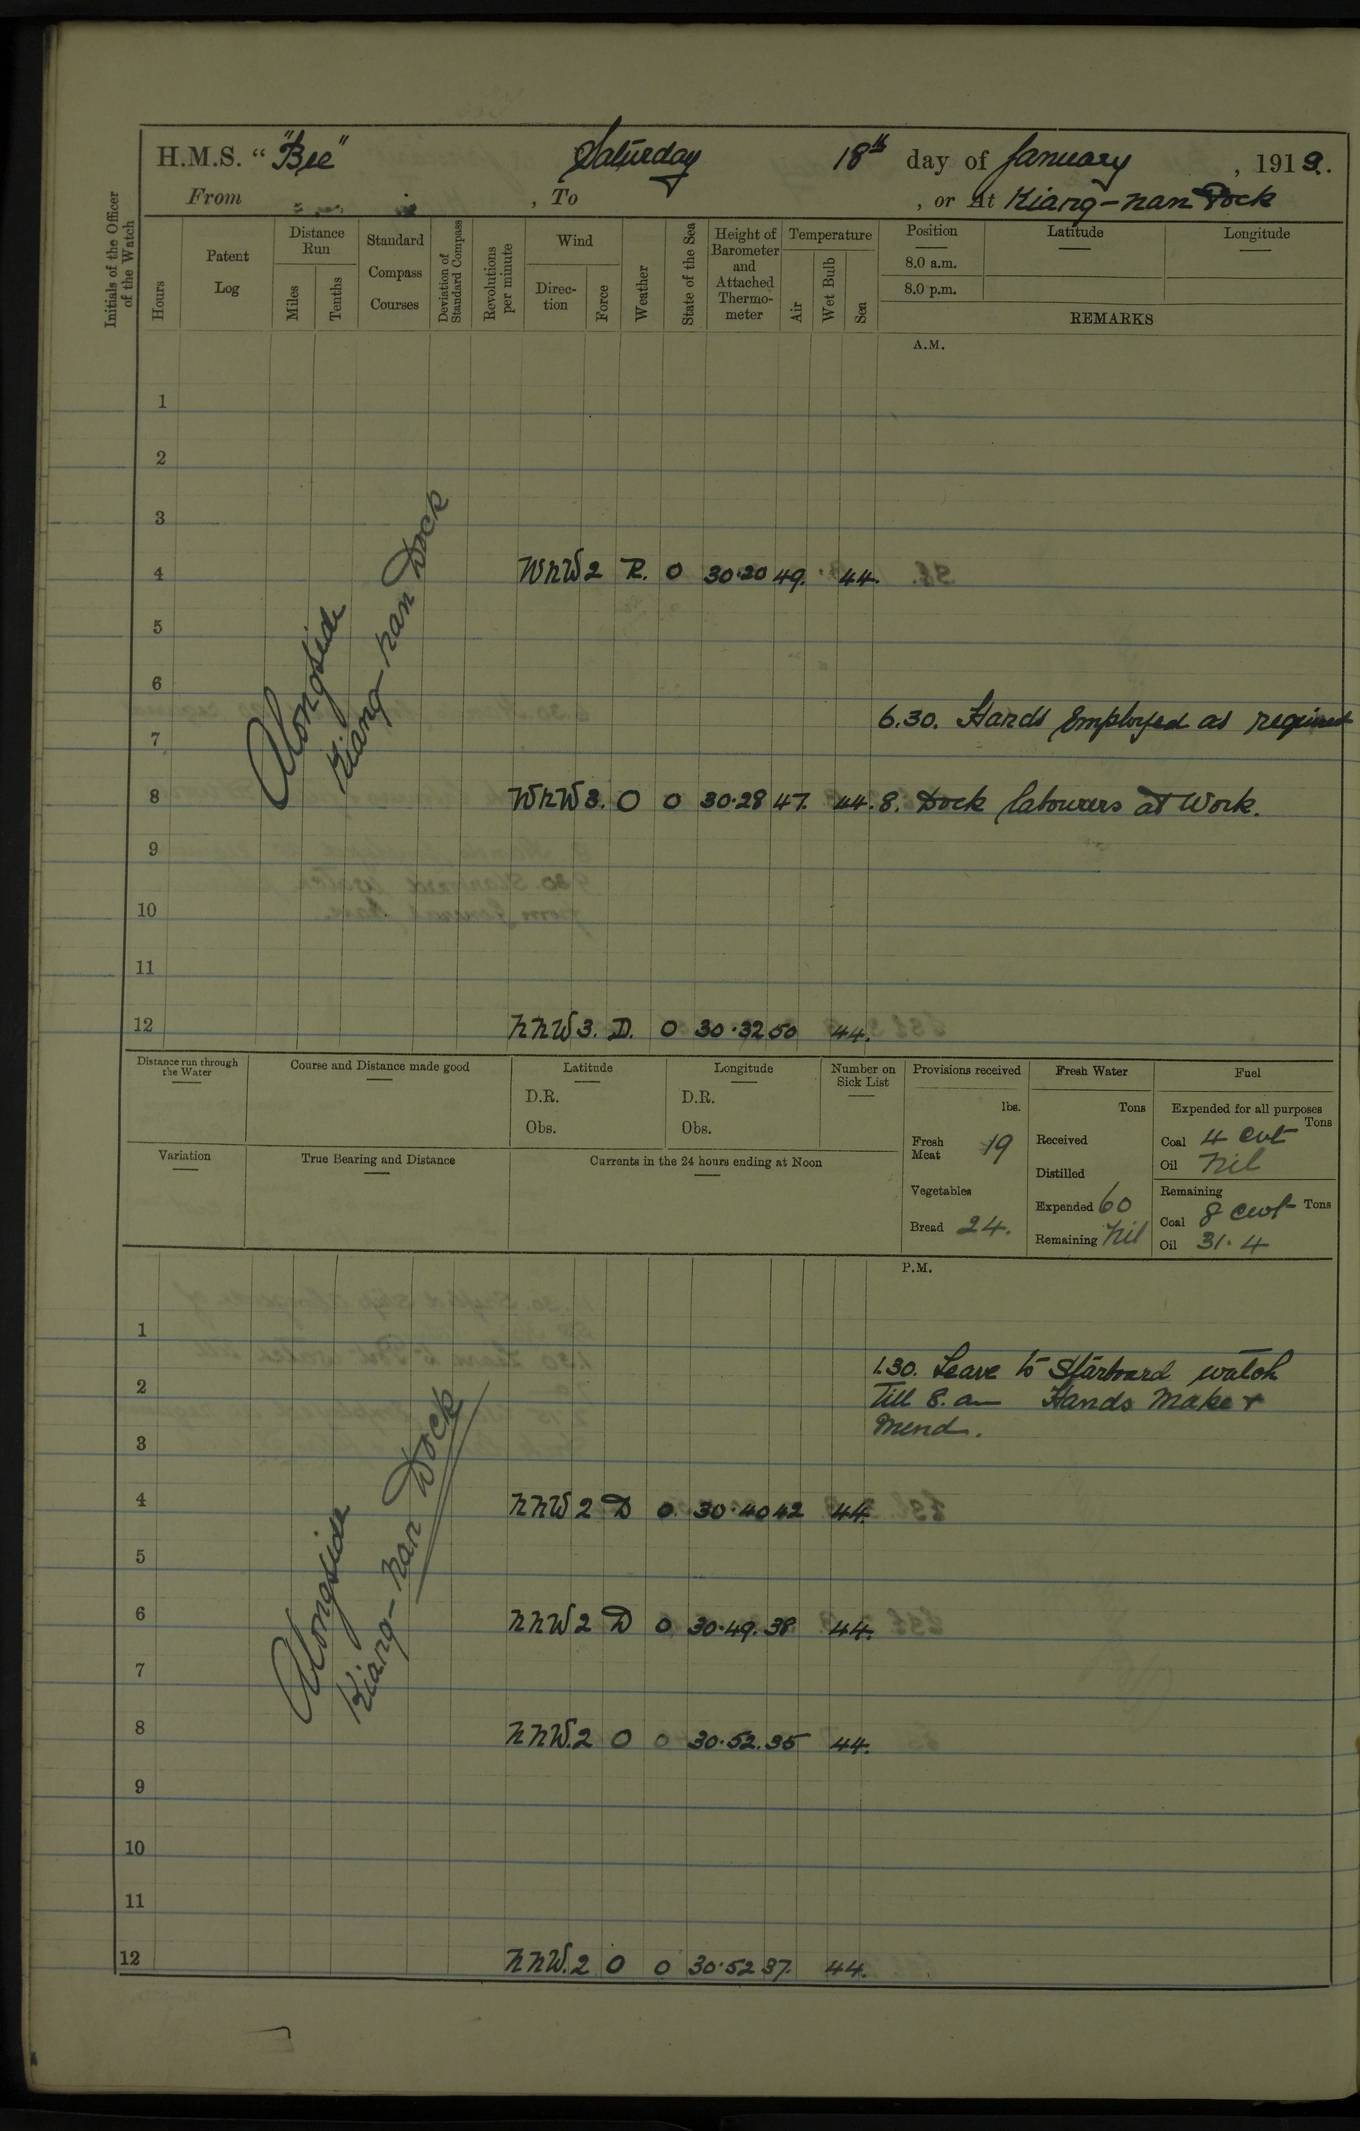 H.M.S. "Bee" Saturday 18th day of January, 1919.
From , To , or At Kiang-nan Dock
Initials of the Officer of the Watch
Hours
Patent Log
Distance Run
Miles
Tenths
Standard Compass Courses
Deviation of Standard Compass
Revolutions per minute
Wind
Direction
Force
Weather
State of the Sea
Height of Barometer and Attached Thermometer
Temperature
Air
Wet Bulb
Sea
Position
8.0 a.m.
8.0 p.m.
Latitude
Longitude
REMARKS
A.M.
1
2
3
4 WNW 2 R. 0 30.20 49. 44.
5
6
6.30. Hands employed as required
7
8 WNW 3. O 0 30.28 47. 44. 8. Dock labourers at Work.
9
10
11
12 NNW 3. D. 0 30.32 50 44.
Alongside
Kiang-nan Dock
Distance run through the Water
Course and Distance made good
Latitude
D.R.
Obs.
Longitude
D.R.
Obs.
Number on Sick List
Variation
True Bearing and Distance
Currents in the 24 hours ending at Noon
Provisions received
lbs.
Fresh Meat 19
Vegetables
Bread 24.
Fresh Water
Tons
Received
Distilled
Expended 60
Remaining Nil
Fuel
Expended for all purposes
Tons
Coal 4 cwt
Oil Nil
Remaining
Coal 8 cwt Tons
Oil 31.4
P.M.
1
1.30. Leave to Starboard watch
2 Till 8. am Hands Make +
mend.
3
4 NNW 2 D 0. 30.40 42 44.
5
6 NNW 2 D 0 30.49. 38 44.
7
8 NNW. 2 O 0 30.52. 35 44.
9
10
11
12 NNW. 2 O 0 30.52 37. 44.
Alongside
Kiang-nan Dock